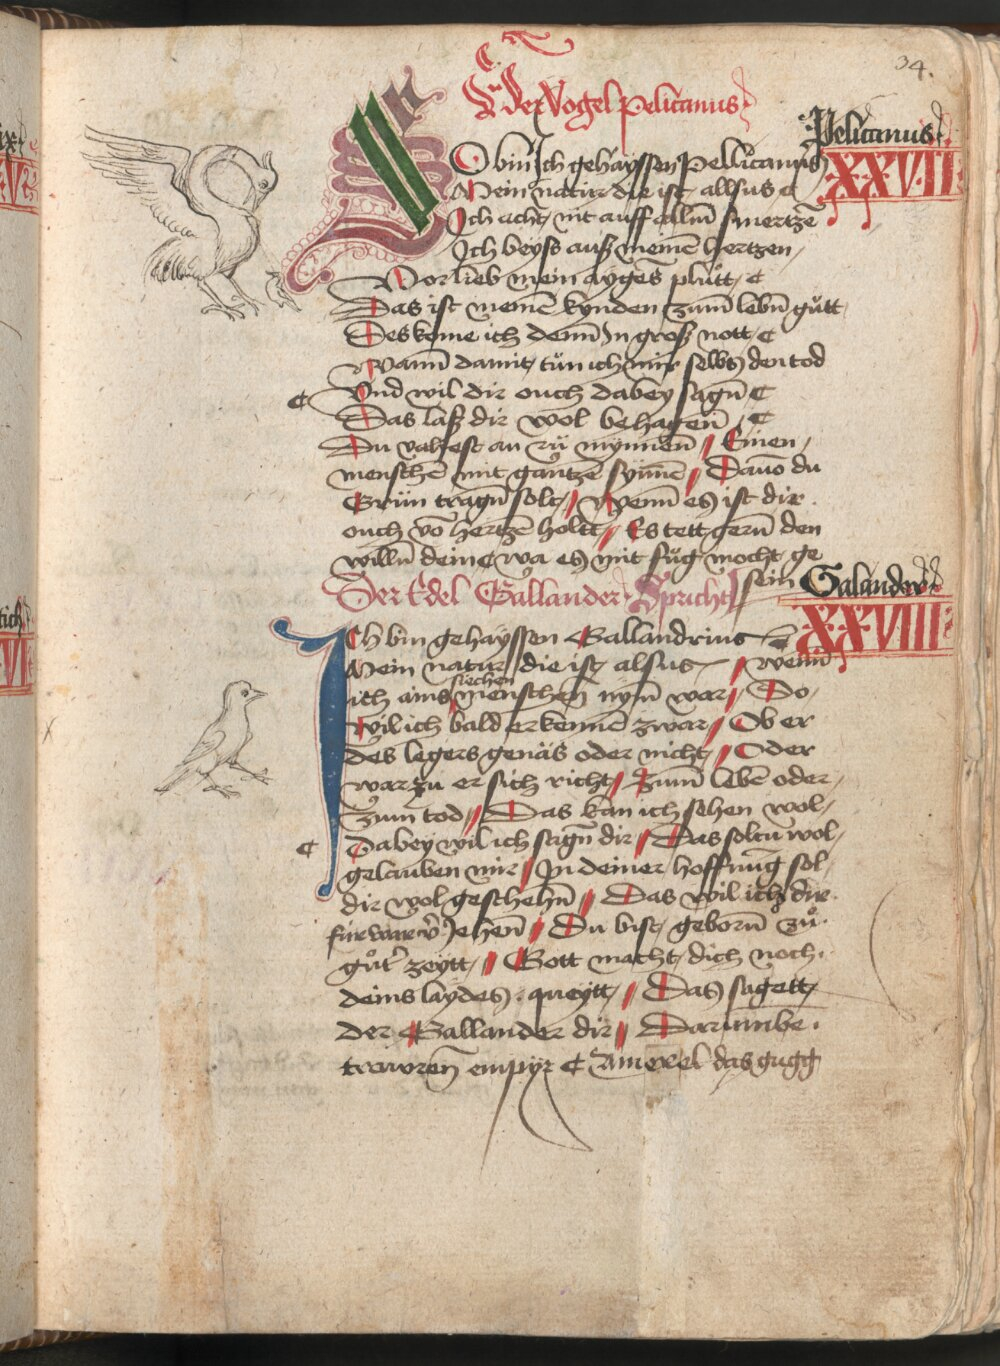 34.
Der Vogel pelicanus
Pelicanus
XXVII
SO bin Ich gehayssen Pellicanus
Mein natur die ist allsus
Ich acht nit auff allen smertzē
Ich beyss auß meinē hertzen
Vor lieb mein ayges plůtt
Das ist meinē kynden zum lebn̄ gůtt
Des kome ich denn̄ In groß nott
Wann̄ damit tůn ich mir selbs den tod
Und wil dir ouch dabey sagn̄
Das laß dir wol behagen̄
Du vahest an zů mynnen̄ // Einen
menschē mit gantzē synnē // Dauō du
Grün tragn̄ solt // Wenn̄ es ist dir
ouch vō hertzē holtt // Es tett gern̄ den
willn̄ deinē wa es mit fůg mocht ge
sein
Der Edel Gallander Spricht
Galander
XXVIII
Ich bin gehayssen Gallandrius
Mein natur die ist alsus // Wenn̄
ich ains siechen menschen nym̄ war // Do
wil ich bald erkennē zwar // Ob er
des legers genäs oder nicht // Oder
warzu er sich richt // Zum̄ lebē oder
zum tod // Das kan ich sehen wol
Dabey wil ich sagn̄ dir // Das soltu wol
gelauben mir // In deiner hoffnūg sol
dir wol geschehn̄ // Das wil ich dir
fürwar v̄Jehen̄ // Du bist geborn̄ zů
gůtr zeytt // Gott macht dich noch
deins laydes queytt // Das sagett
der Gallander dir // Darumbe
trawren̄ empyr Amerel das gugg
ix
tich
VI